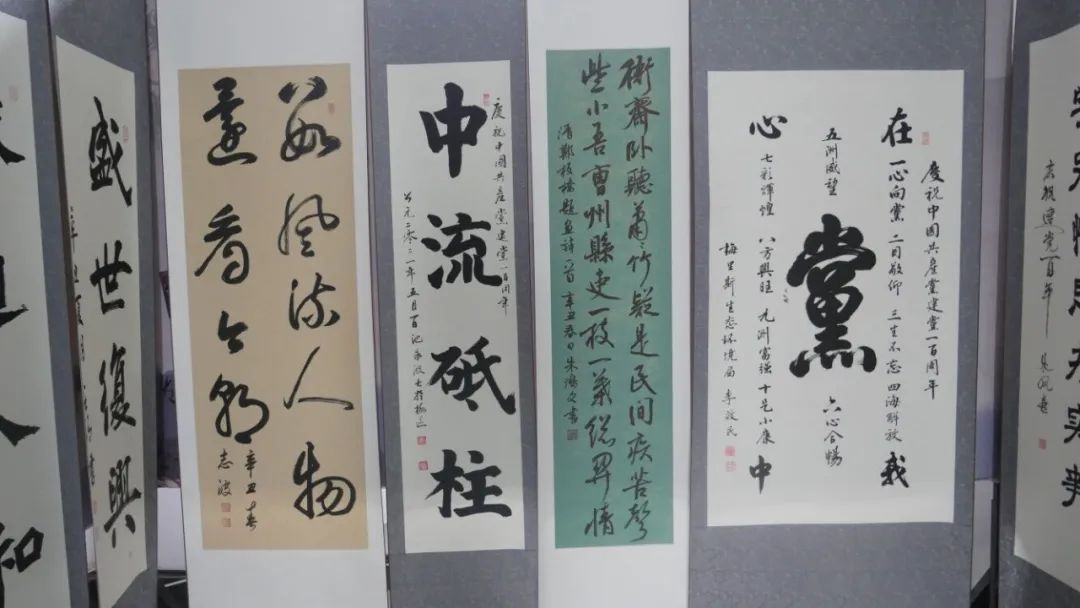 通人和
盛世復興
數風流人物
還看今朝
辛丑春
志波
慶祝中國共產黨建黨一百周年
中流砥柱
公元二零二一年五月
衙齋卧聽蕭〻竹疑是民間疾苦聲
些小吾曹州縣吏一枝一葉總關情
清鄭板橋題畫詩一首 辛丑春日朱鴻文書
慶祝中國共産黨建黨一百周年
在我
一心向黨 二目敬仰 三生不忘 四海解放
五洲威望
黨
六心合暢
心中
七彩輝煌 八方興旺 九洲富强 十足小康
梅里斯生态环境局 李政民
慶祝建党百年